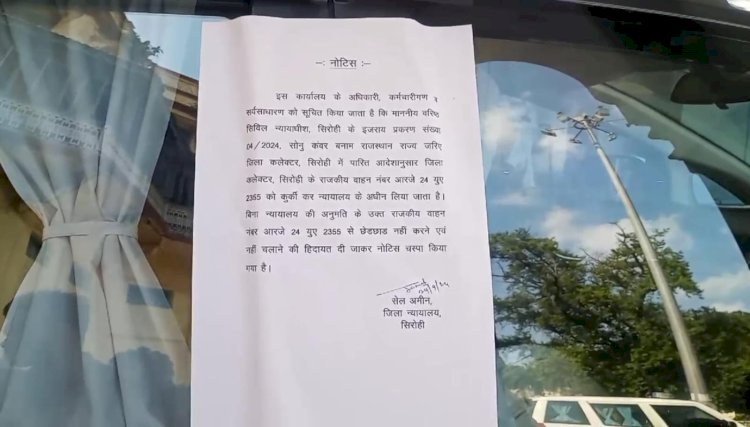 -: नोटिस :-
इस कार्यालय के अधिकारी, कर्मचारीगण व
सर्वसाधारण को सूचित किया जाता है कि माननीय वरिष्ठ
सिविल न्यायाधीश, सिरोही के इजराय प्रकरण संख्या
04/2024, सोनु कंवर बनाम राजस्थान राज्य जरिए
जिला कलेक्टर, सिरोही में पारित आदेशानुसार जिला
कलेक्टर, सिरोही के राजकीय वाहन नंबर आरजे 24 युए
2355 को कुर्की कर न्यायालय के अधीन लिया जाता है।
बिना न्यायालय की अनुमति के उक्त राजकीय वाहन
नंबर आरजे 24 युए 2355 से छेडछाड नहीं करने एवं
नहीं चलाने की हिदायत दी जाकर नोटिस चस्पा किया
गया है।
सेल अमीन,
जिला न्यायालय,
सिरोही